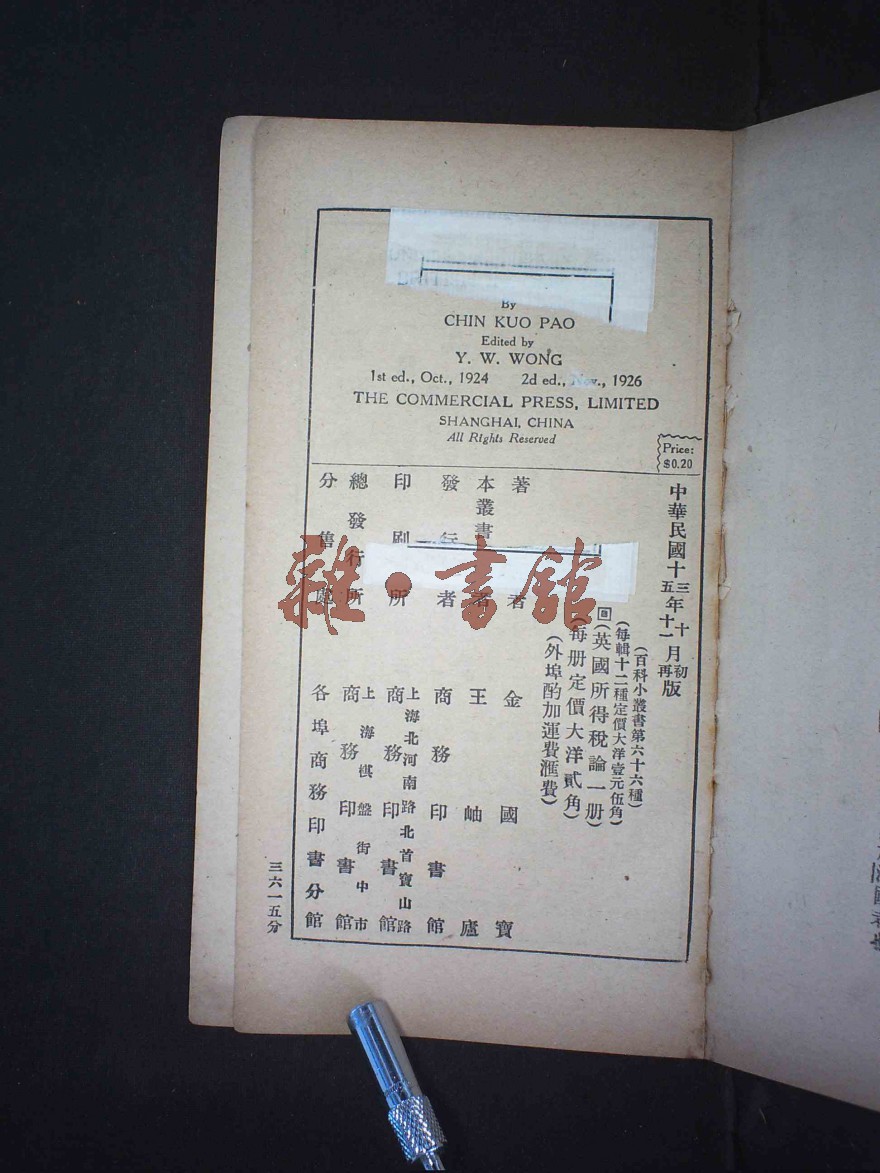 By
CHIN KUO PAO
Edited by
Y. W. WONG
1st ed., Oct., 1924 2d ed., Nov., 1926
THE COMMERCIAL PRESS, LIMITED
SHANGHAI, CHINA
All Rights Reserved
Price:
$0.20
中華民國十三年十月初版
十五年十一月再版
(百科小叢書第六十六種)
(每輯十二種定價大洋壹元伍角)
回(英國所得稅論一册)
(每册定價大洋貳角)
(外埠酌加運費滙費)
著者 金國寶
本叢書 者 王岫廬
發行者 商務印書館
印刷所 上海北河南路北首寶山路 商務印書館
總發行所 上海棋盤街中市 商務印書館
分售處 各埠商務印書分館
三六一五分
雜·書館